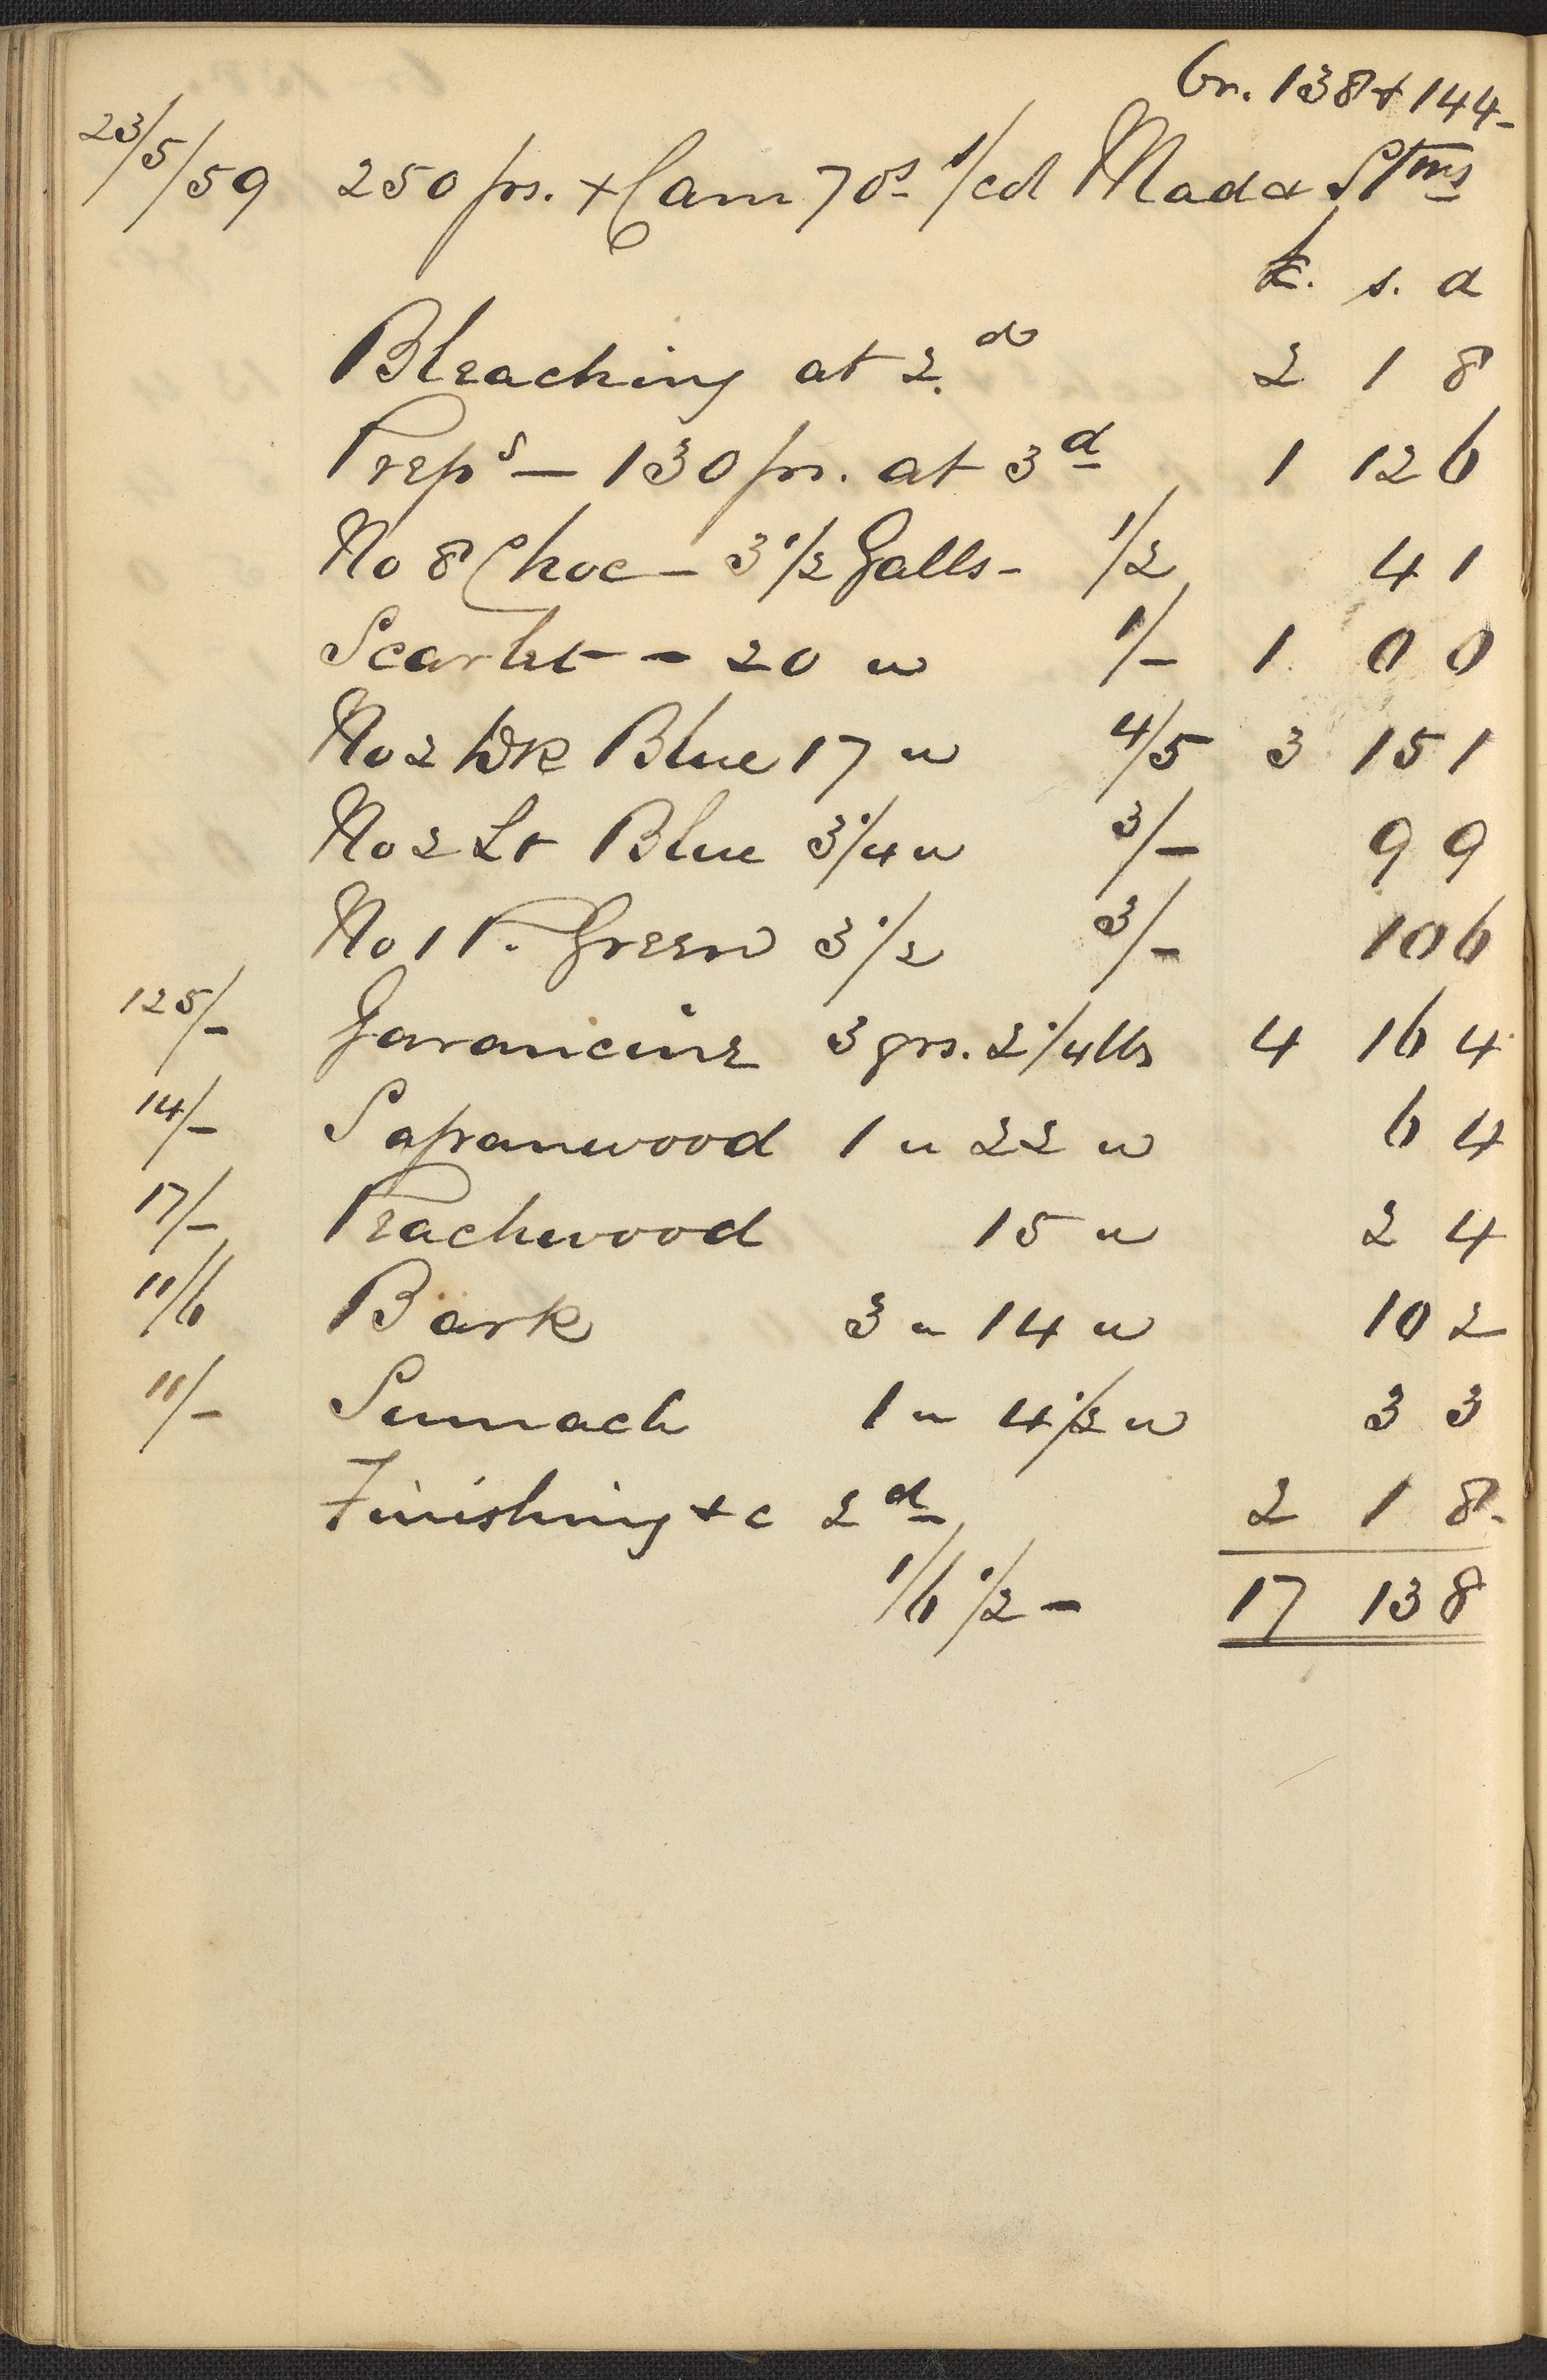 Gr. 138 & 144-
23/5/59 250 prs. + Cam 70s 1/cd Mad & Stms
£. s. d
Bleaching at 2.d 2 1 8
Preps - 130 prs. at 3d 1 12 6
No 8 Choc - 3 1/2 Galls - 1/2 4 1
Scarlet - 20 " 1/- 1 0 0
No 2 Dk Blue 17 " 4/5 3 15 1
No 2 Lt Blue 3 1/4 " 3/- 9 9
No 1 P. Green 3 1/2 3/- 10 6
125/- Garancine 3 qrs. 2 1/4 lbs 4 16 4
14/- Sapanwood 1 " 22 " 6 4
17/- Peachwood 15 " 2 4
11/6 Bark 3 " 14 " 10 2
11/- Sumach 1 " 4 1/2 " 3 3
Finishing & c 2d 2 1 8-
1/6 1/2 - 17 13 8